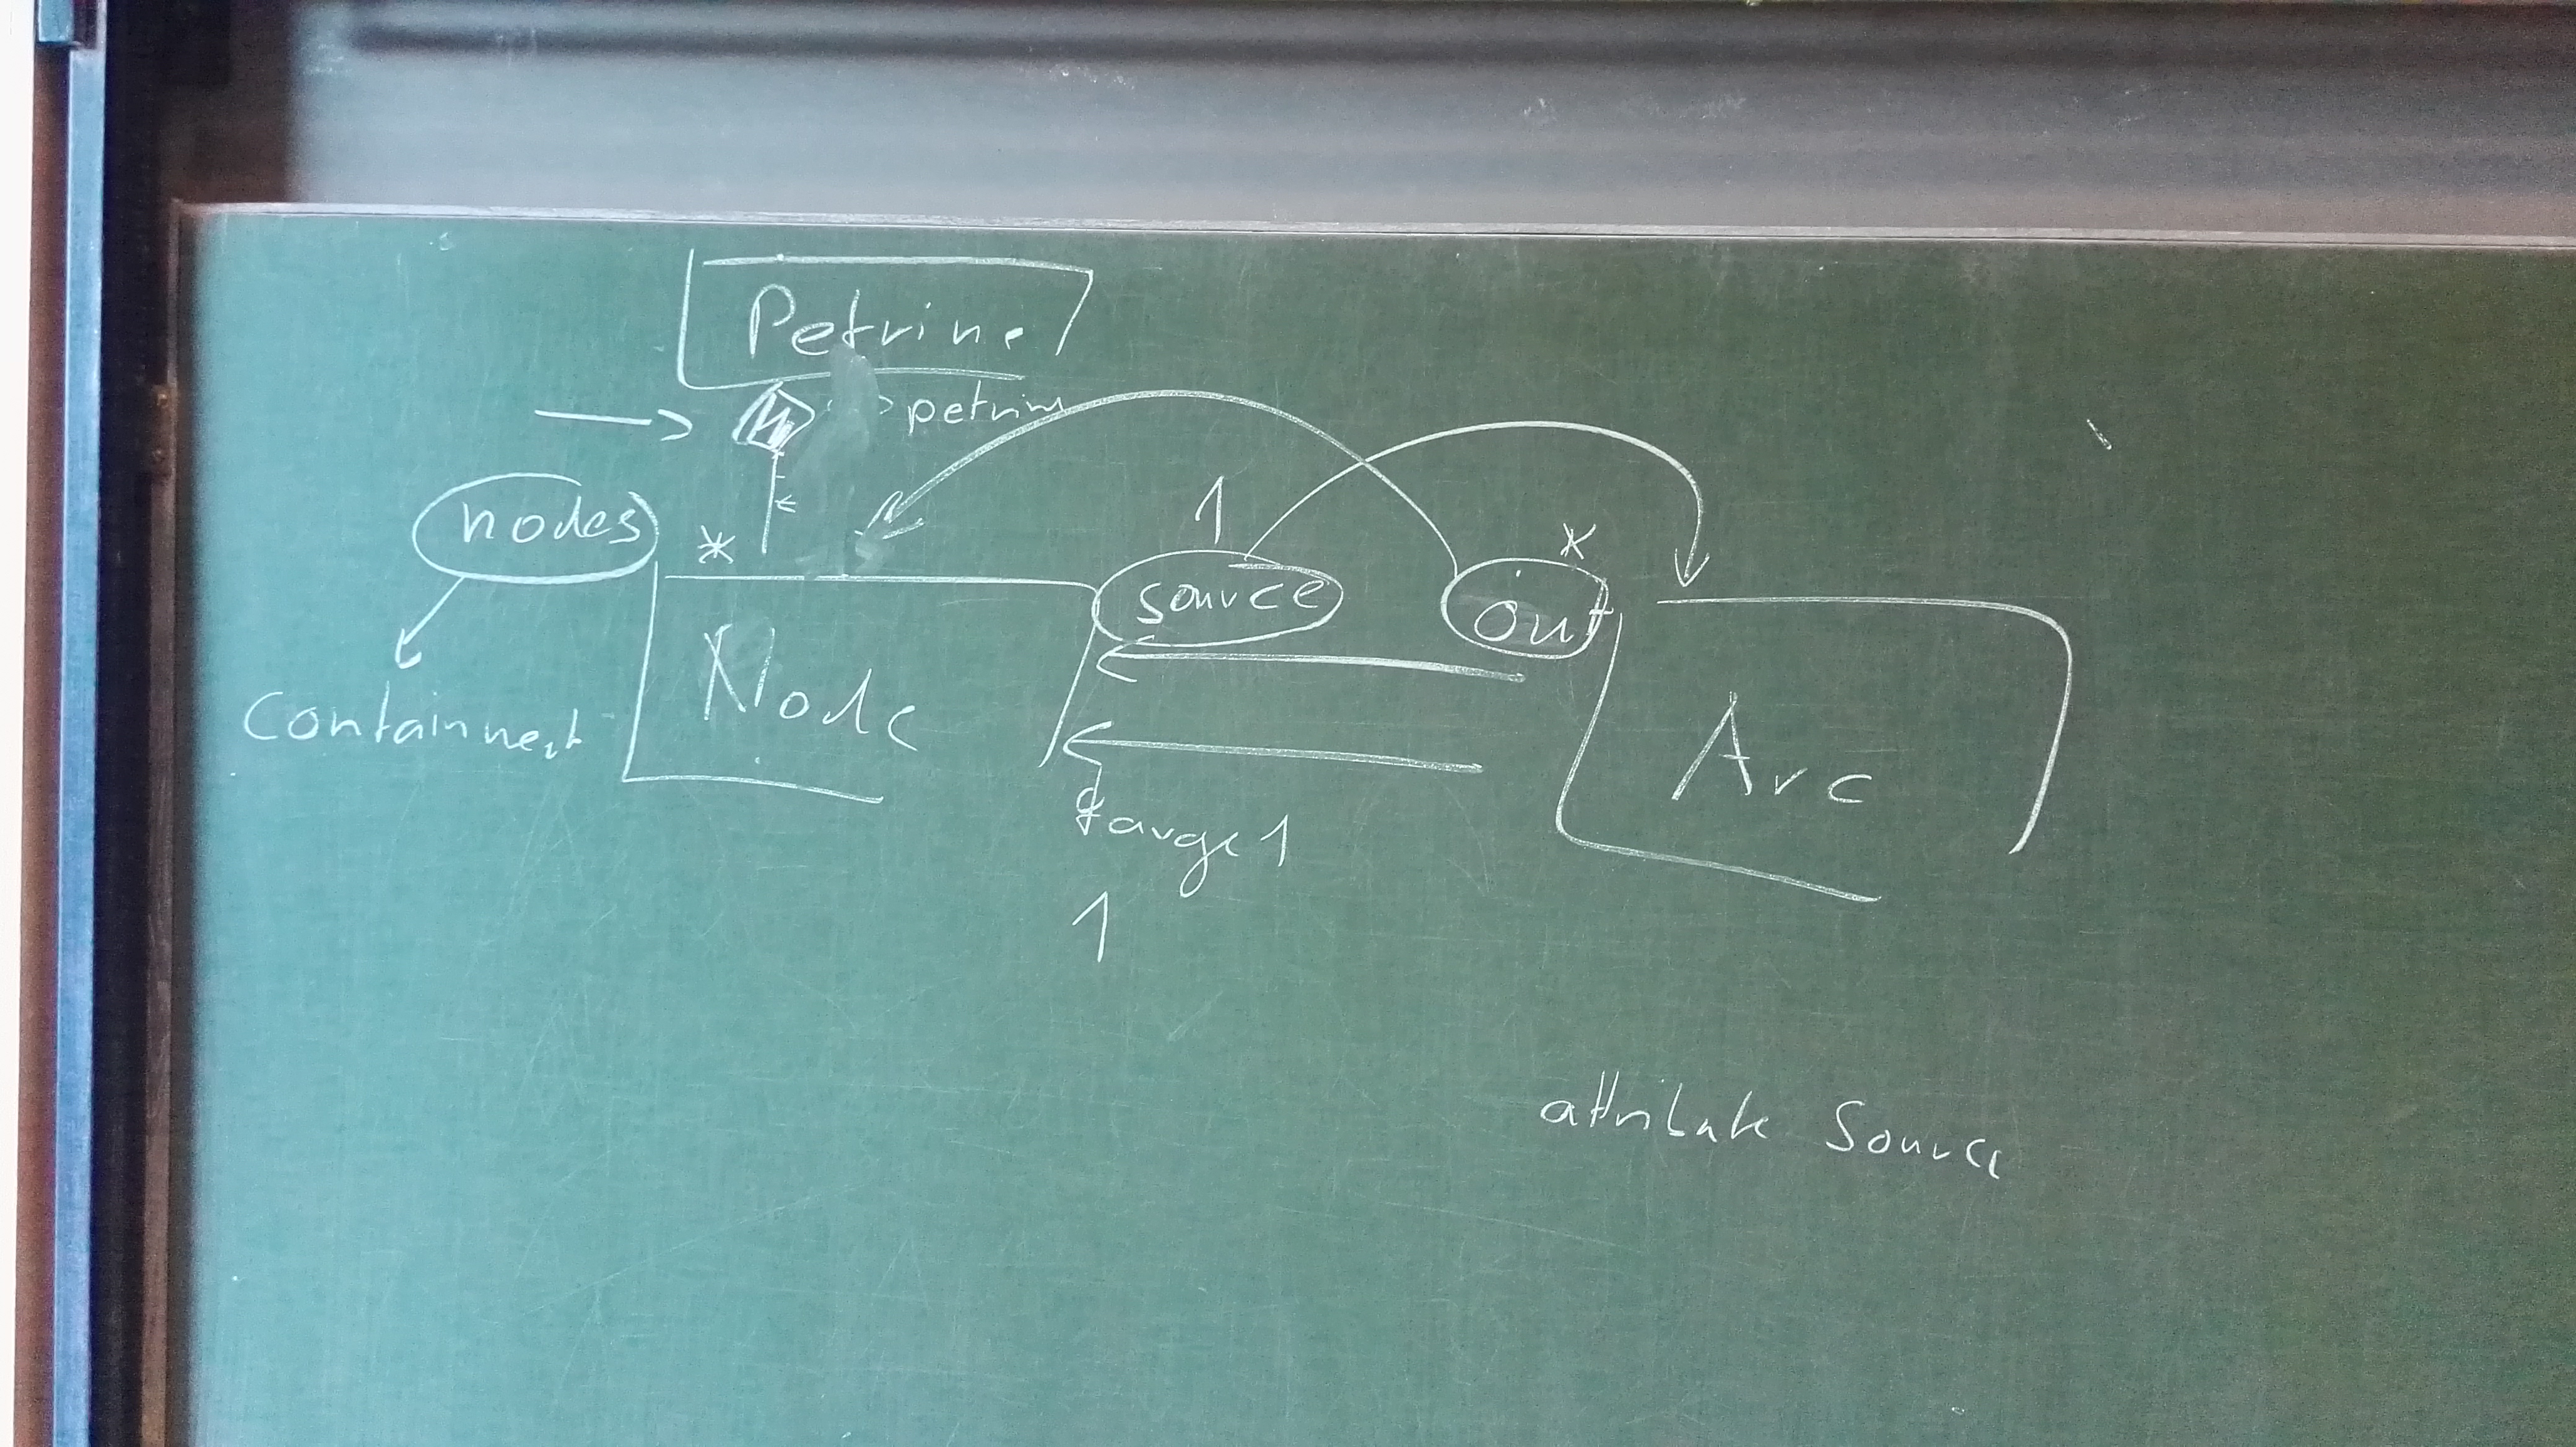 Petrine
petrin
nodes
*
1
source
*
out
Node
Containment
Arc
target
1
attribute Source